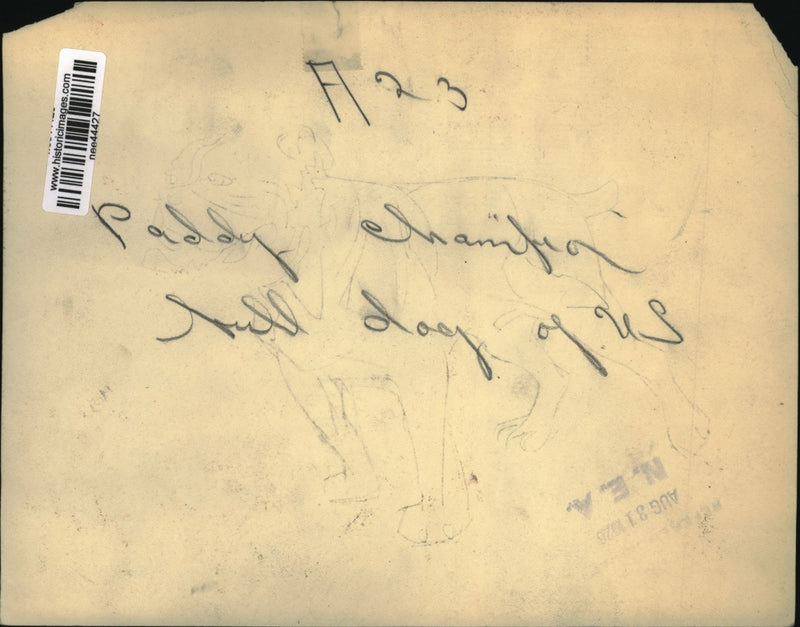 A 23
www.historicimages.com
nee44427
Paddy Champion
bull dog of US
N. E. A.
AUG 31 1926